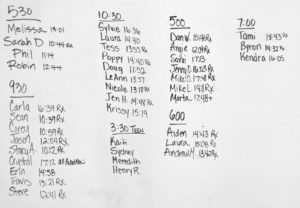 530
Melissa 13:01
Sarah D 10:44 Rx
Phil 11:14
Robin 12:44
930
Carla 16:39 Rx
Sean 10:39 Rx
Corey 10:59 Rx
Jason 12:09 Rx
Stacy A 10:12 Rx
Crystal 17:12
Erin 14:38
Travis 13:21 Rx
Steve 12:41 Rx
10:30
Sylvia 16:36
Laura 14:40
Tess 13:55 Rx
Poppi 14:40 Rx
Doug 11:52
LeAnn 13:57
Nicole 13:18 Rx
Jen H. 14:48 Rx
Krissy 15:19
3:30 Teen
Kaiti
Sydney
Meredith
Henry R
500
Dan W. 15:48 Rx
Angie 12:09 Rx
Sashi 17:13
Jenny D 16:23 Rx
Mike D. 17:41 Rx
Mike L. 14:11 Rx
Marta 17:48+
600
Aiden 14:43 Rx
Laura 15:28 Rx
Andrew M 13:42 Rx
7:00
Tami 13:43 Rx
Byron 14:32 Rx
Kendra 16:05